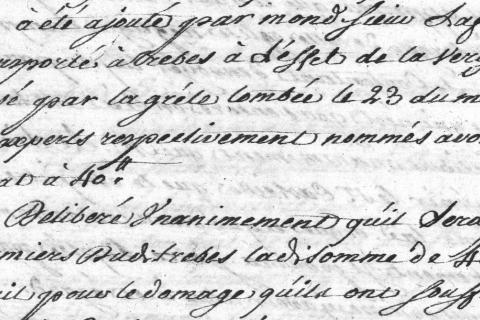 a été ajouté par mond Sieur Lag
nsporté, à trebes à L'effet de la very
sé par la grele tombée le 23 du m
experts respectivement nommés avo
at à 40.tt
Deliberé Unanimement quil Sera
miers Duditrebes ladi somme de 4
uil pour le domage quils ont souff